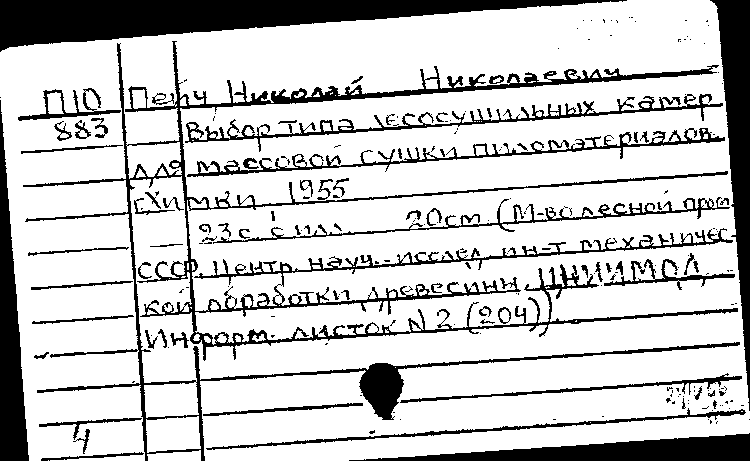 П10 Пейч Николай Николаевич
883 Выбор типа лесосушильных камер
для массовой сушки пиломатериалов.
г. Химки 1955
23 с. с илл. 20см (М-во лесной пром.
СССР. Центр. науч.-исслед. ин-т механичес-
кой обработки древесины. ЦНИИМОД
Информ. листок N 2 (204))
4